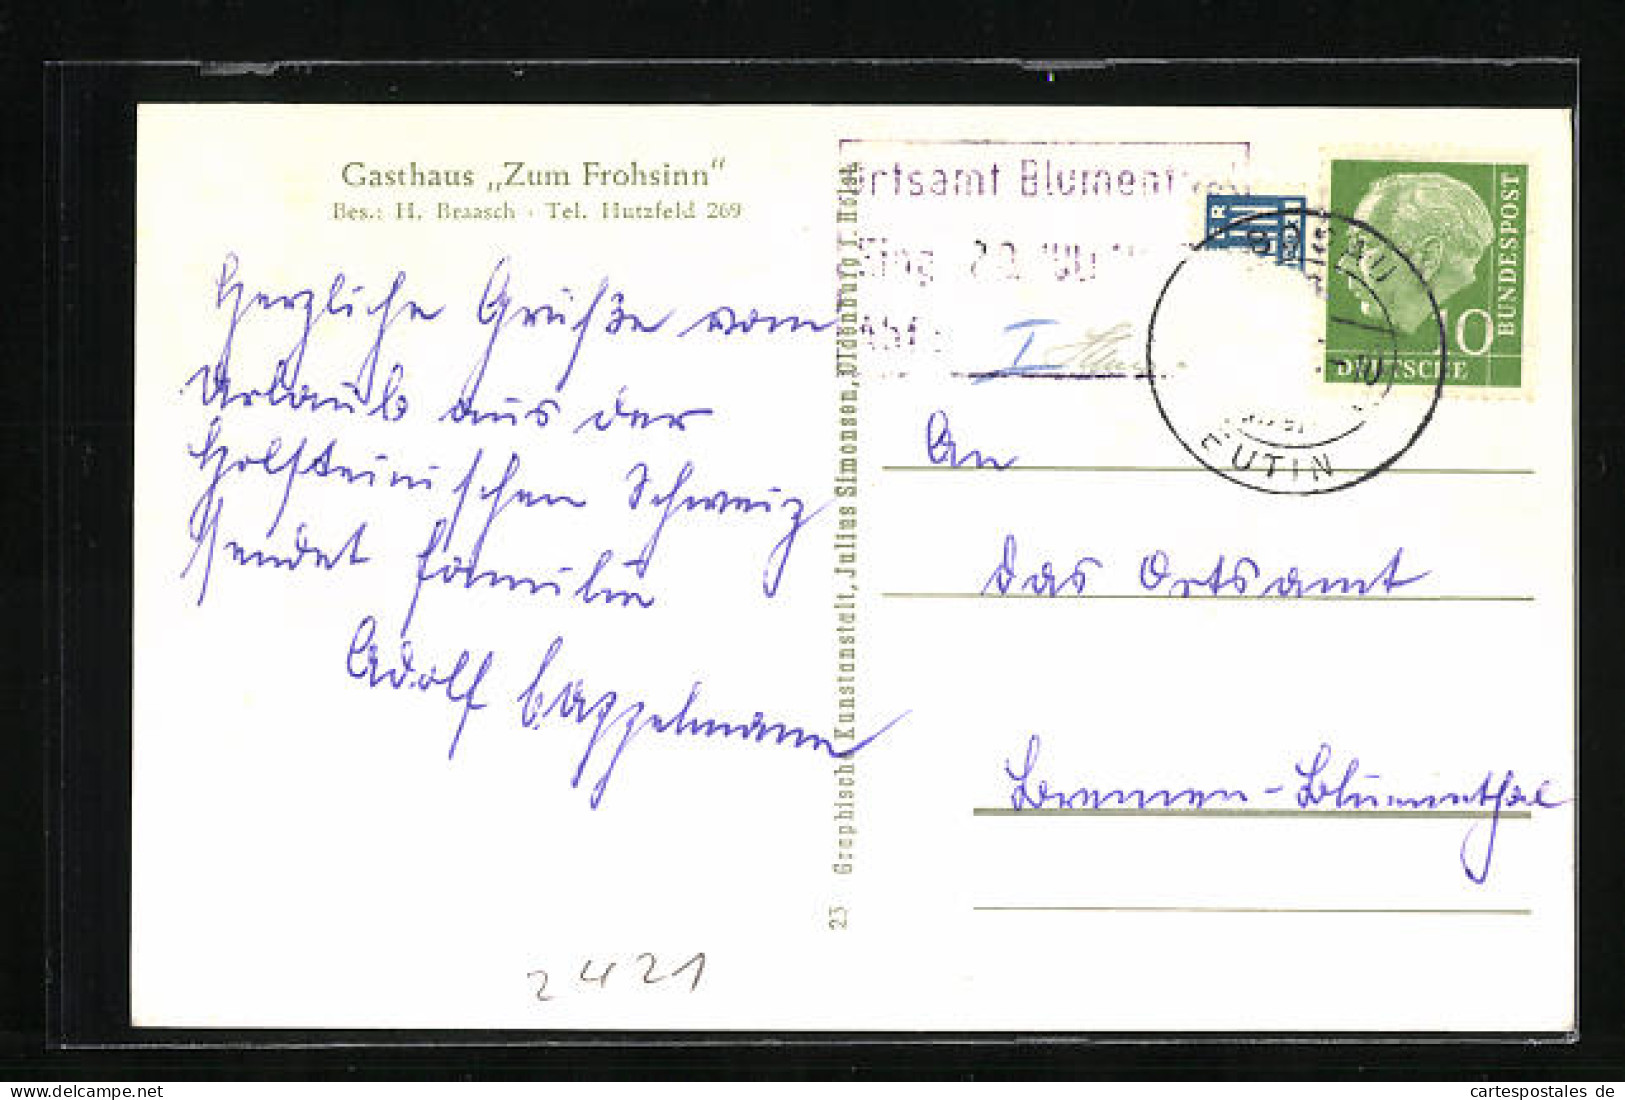 Gasthaus „Zum Frohsinn"
Bes.: H. Braasch · Tel. Hutzfeld 269
Herzliche Grüße vom
Urlaub aus der
Holsteinischen Schweiz
sendet Familie
Adolf Cappelmann
2421
23 Graphische Kunstanstalt, Julius Simonsen, Oldenburg i. Holst.
Ortsamt Blumenthal
Eing. 20.
I
EUTIN
10
DEUTSCHE
BUNDESPOST
An
das Ortsamt
Bremen-Blumenthal
oldthing
cartespostales de